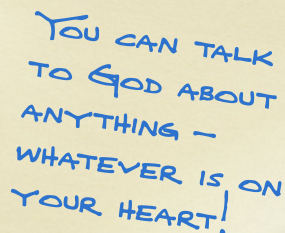 YOU CAN TALK
TO GOD ABOUT
ANYTHING —
WHATEVER IS ON
YOUR HEART!